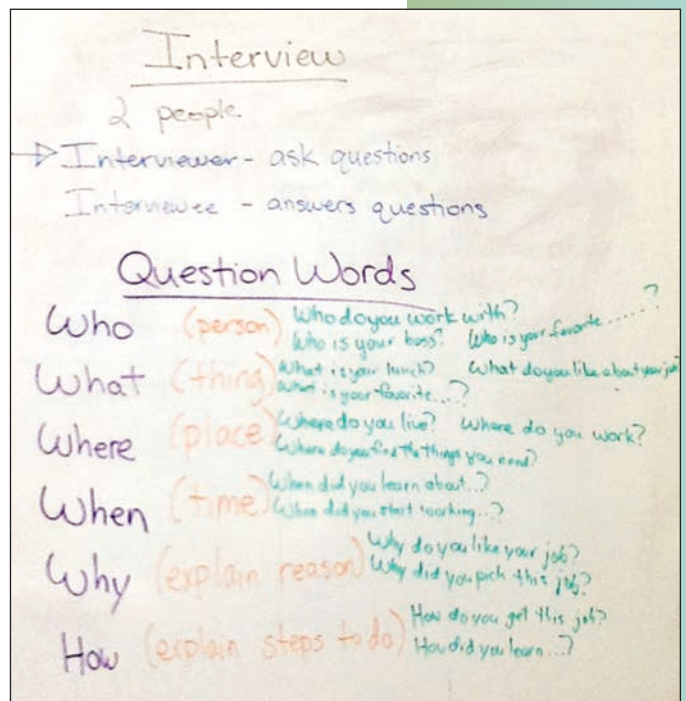 Interview
2 people
Interviewer - ask questions
Interviewee - answers questions
Question Words
Who (person) Who do you work with?
Who is your boss? Who is your favorite......?
What (thing) What is your lunch? What do you like about your job
What is your favorite....?
Where (place) Where do you live? Where do you work?
Where do you find the things you need?
When (time) When did you learn about...?
When did you start working...?
Why (explain reason) Why do you like your job?
Why did you pick this job?
How (explain steps to do) How do you get this job?
How did you learn...?